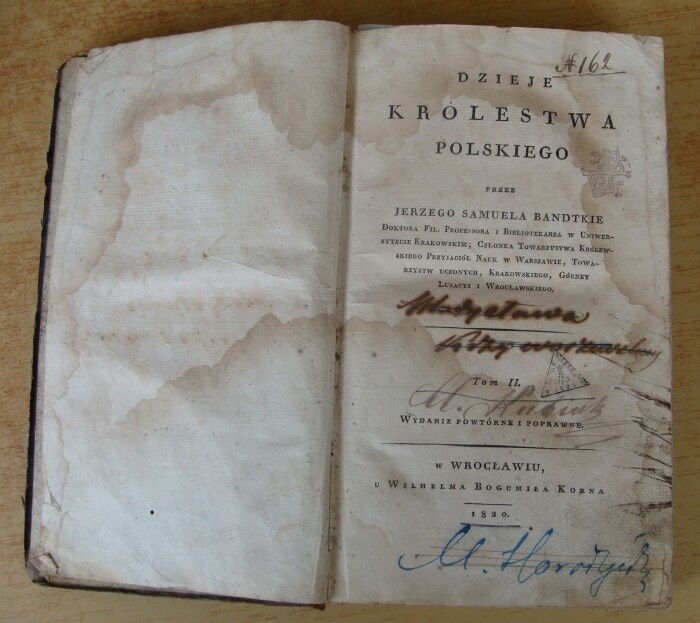 № 162
DZIEJE
KRÓLESTWA
POLSKIEGO
PRZEZ
JERZEGO SAMUELA BANDTKIE
DOKTORA FIL. PROFESSORA I BIBLIOTEKARZA W UNIWER-
SYTECIE KRAKOWSKIM; CZŁONKA TOWARZYSTWA KRÓLEW-
SKIEGO PRZYJACIÓŁ NAUK W WARSZAWIE, TOWA-
RZYSTW UCZONYCH, KRAKOWSKIEGO, GÓRNEY
LUZACYI I WROCŁAWSKIEGO.
Władysława
TOM II.
M.
WYDANIE POWTÓRNE I POPRAWNE.
W WROCŁAWIU,
U WILHELMA BOGUMIŁA KORNA
1820.
M.